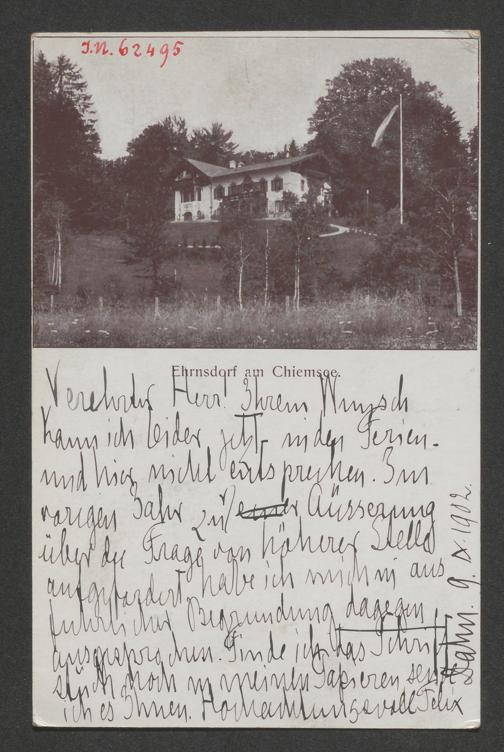 I.N. 62495
Ehrnsdorf am Chiemsee.
Verehrter Herr! Ihrem Wunsch
kann ich leider jetzt in den Ferien
und hier nicht entsprechen. Im
vorigen Jahr zur Äusserung
über die Frage von höherer Stelle
aufgefordert habe ich mich in aus
führlicher Begründung dagegen
ausgesprochen. Finde ich das Schrift
stück noch in meinen Papieren send
ich es Ihnen. Hochachtungsvoll Felix
Dahn. 9. IX. 1902.